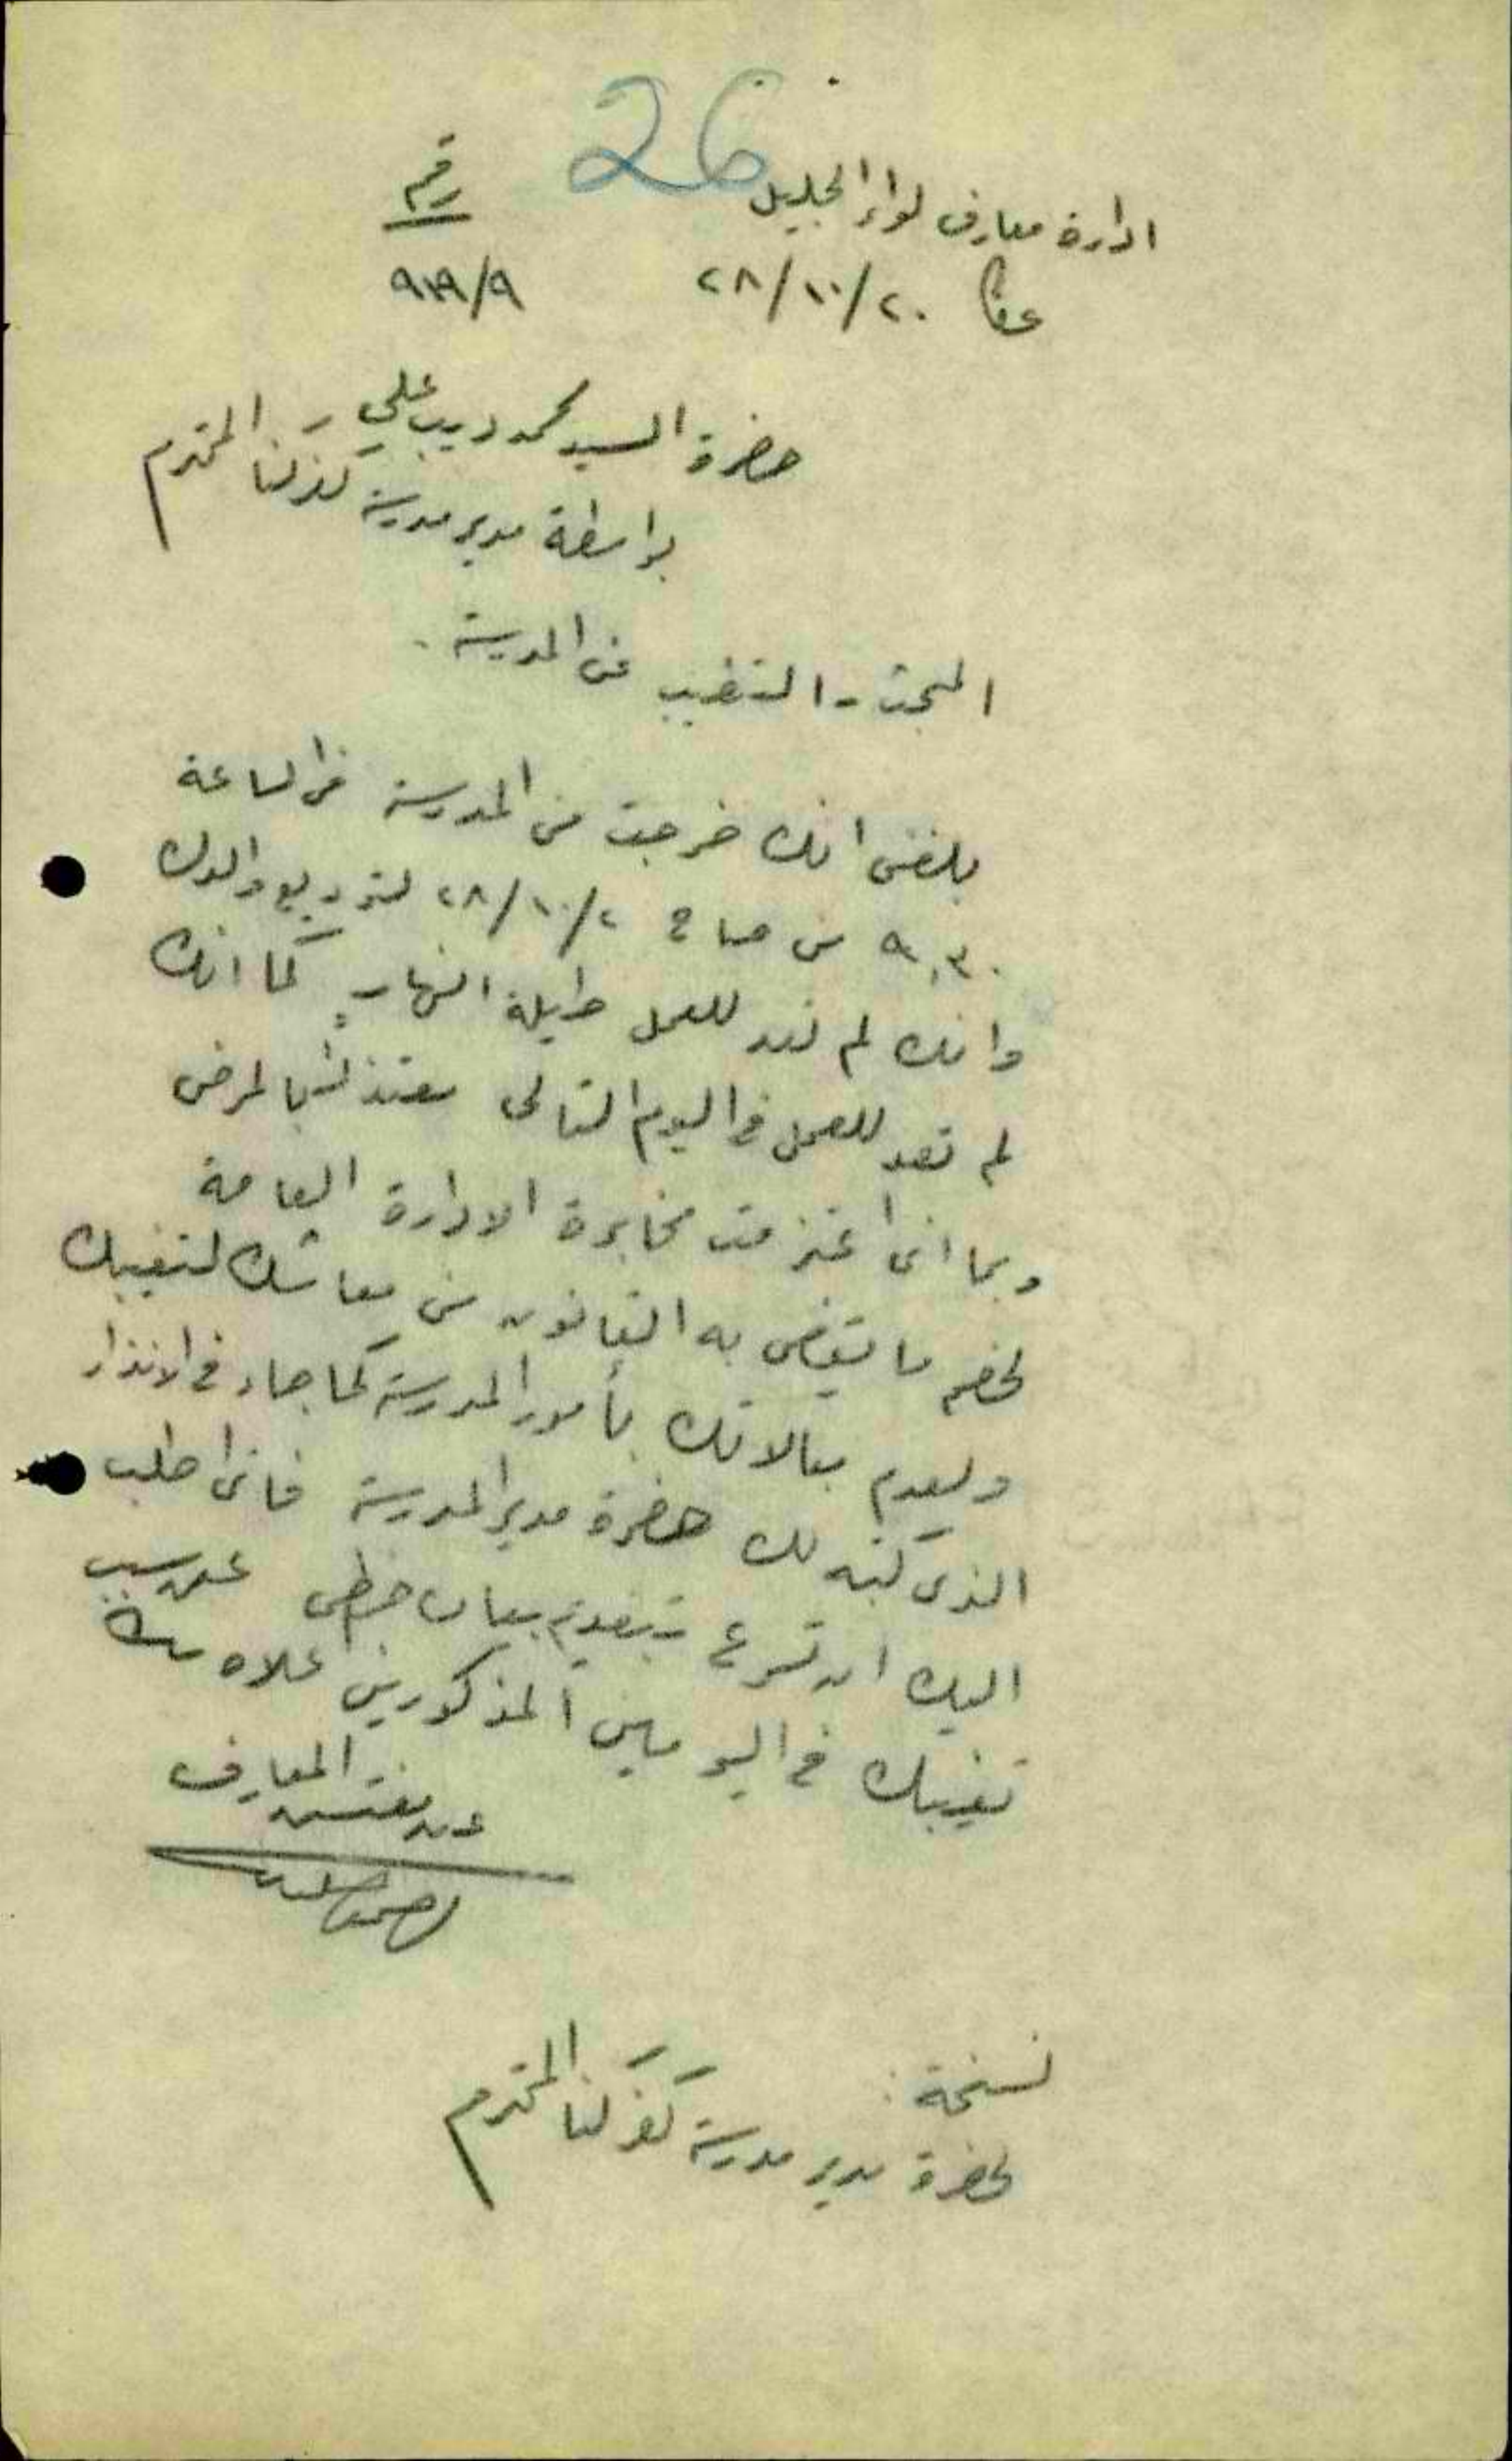 26
ادارة معارف لواء الجليل رقم
عكا ٢٠/١٠/٢٨ ٩/
حضرة السيد محمد ديب علي
بواسطة مدير مدرسة كفركنا المحترم
المبحث - التغيب عن المدرسة .
بلغني انك خرجت من المدرسة في الساعة
٩,٣٠ من صباح ٢/١٠/٢٨ لتوديع والدك
وانك لم تعد للعمل طيلة النهار كما انك
لم تعد للعمل في اليوم التالي معتذرا بالمرض
وبما اني اعتزمت مخابرة الادارة العامة
لخصم ما يقضي به القانون من معاشك لتغيبك
ولعدم مبالاتك بأمور المدرسة كما جاء في الانذار
الذي كتبه لك حضرة مدير المدرسة فاني اطلب
اليك ان تسرع بتقديم بيان خطي عن سبب
تغيبك في اليومين المذكورين اعلاه
عن مفتش المعارف
نسخة :
لحضرة مدير مدرسة كفركنا المحترم